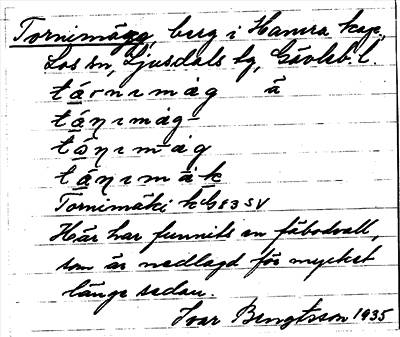 Tornimägg, berg i Hamra kap.
Los sn, Ljusdals tg, Gävleb. l.
tɑ́ɳɩmäg
tǫ́ɳɩmäg
tɑ́ɳɩmäk
Tornimäki kG83 SV
Här har funnits en fäbodvall,
som är nedlagd för mycket
länge sedan.
Ivar Bengtsson 1935